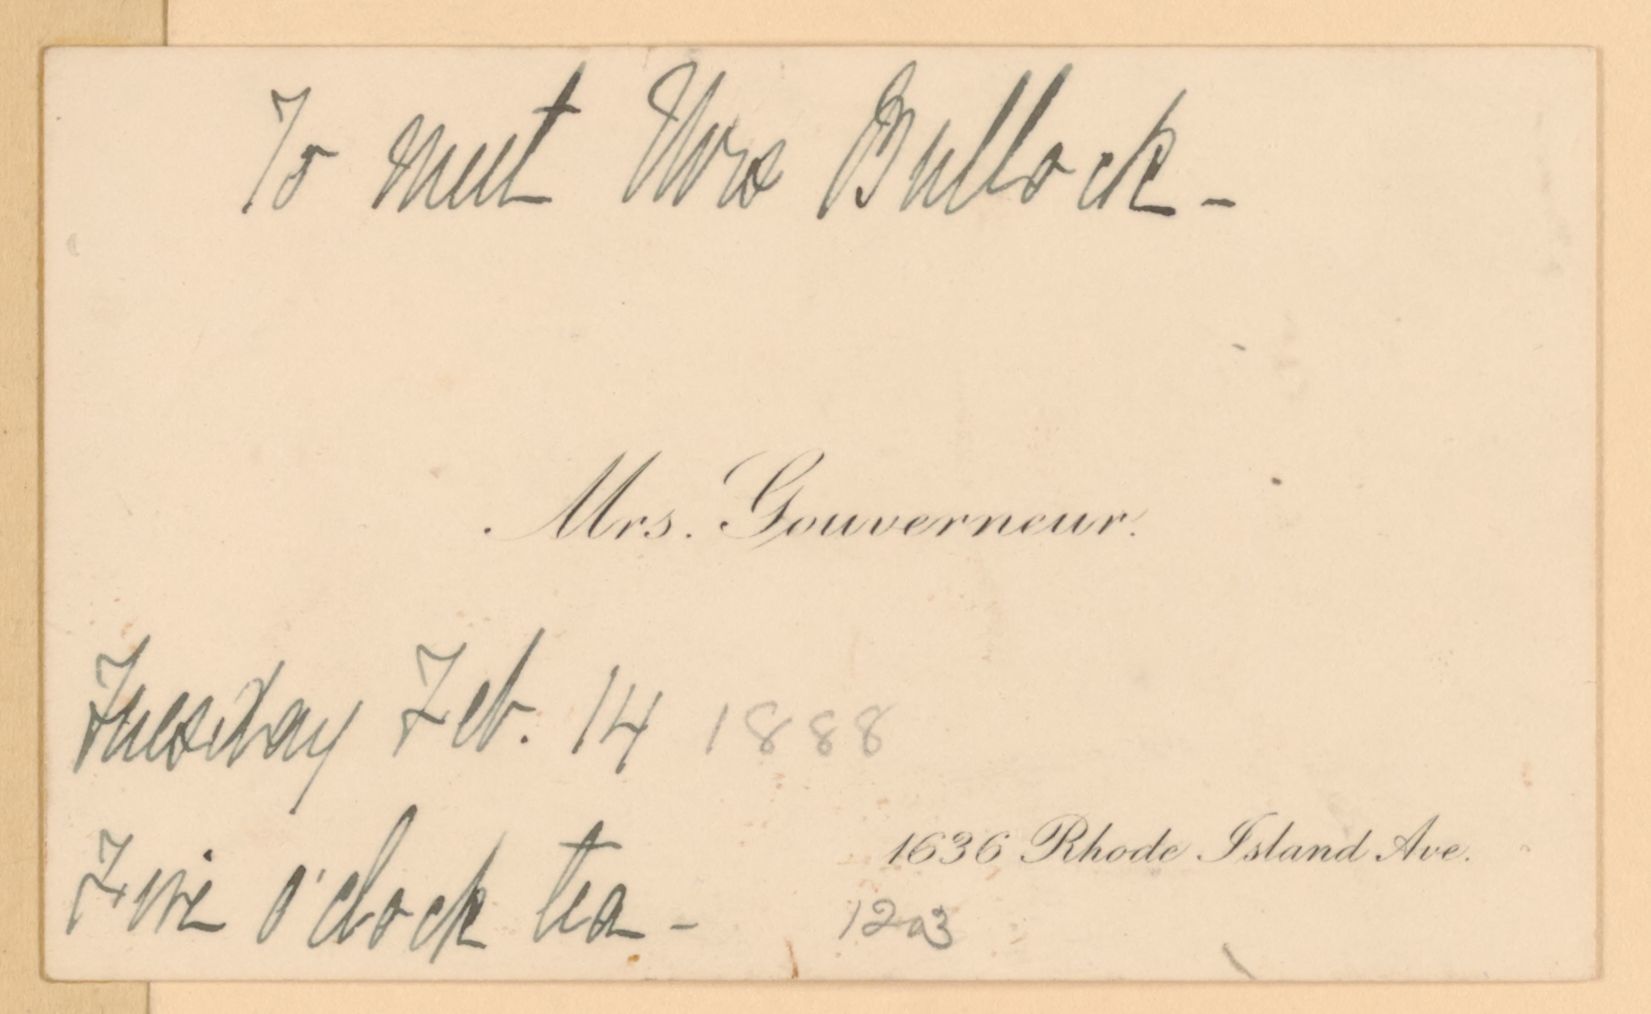 To meet Mrs Bullock -
Mrs. Gouverneur.
Tuesday Feb. 14 1888
Five o'clock tea -
1636 Rhode Island Ave.
1203